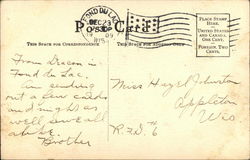 FOND DU LAC
DEC 23
Post Card
PLACE STAMP
HERE
UNITED STATES
AND CANADA,
ONE CENT.
FOREIGN, TWO
CENTS.
THIS SPACE FOR CORRESPONDENCE
THIS SPACE FOR ADDRESS ONLY
From Deacon in
Fond du Lac.
Am sending
out a few cards
and might as
well send all
Brother
Miss Hazel Johnston
Appleton
Wis
R.F.D. #6